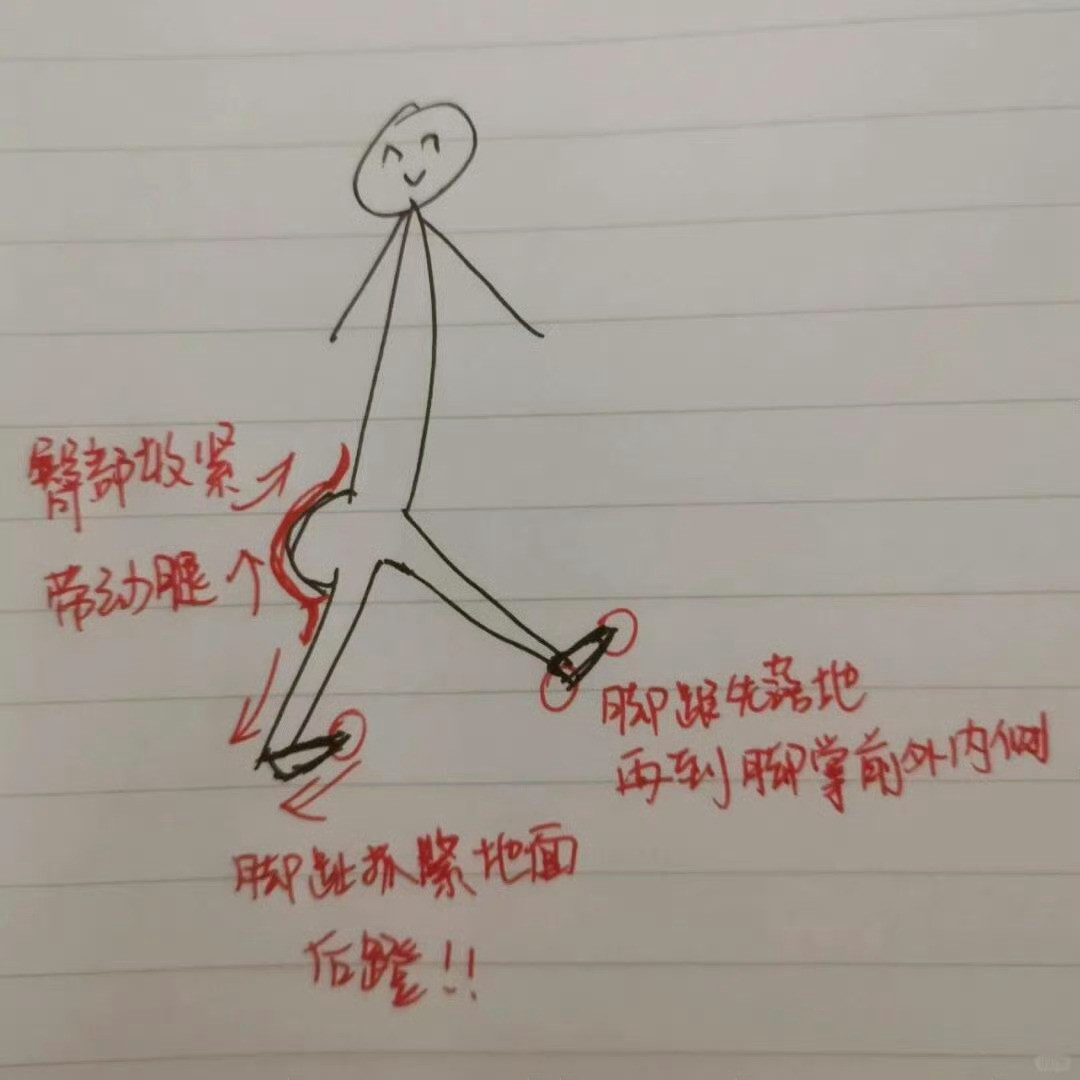 臀部收紧
带动腿
脚跟先落地
再到脚掌前外内侧
脚趾抓紧地面
后蹬!!